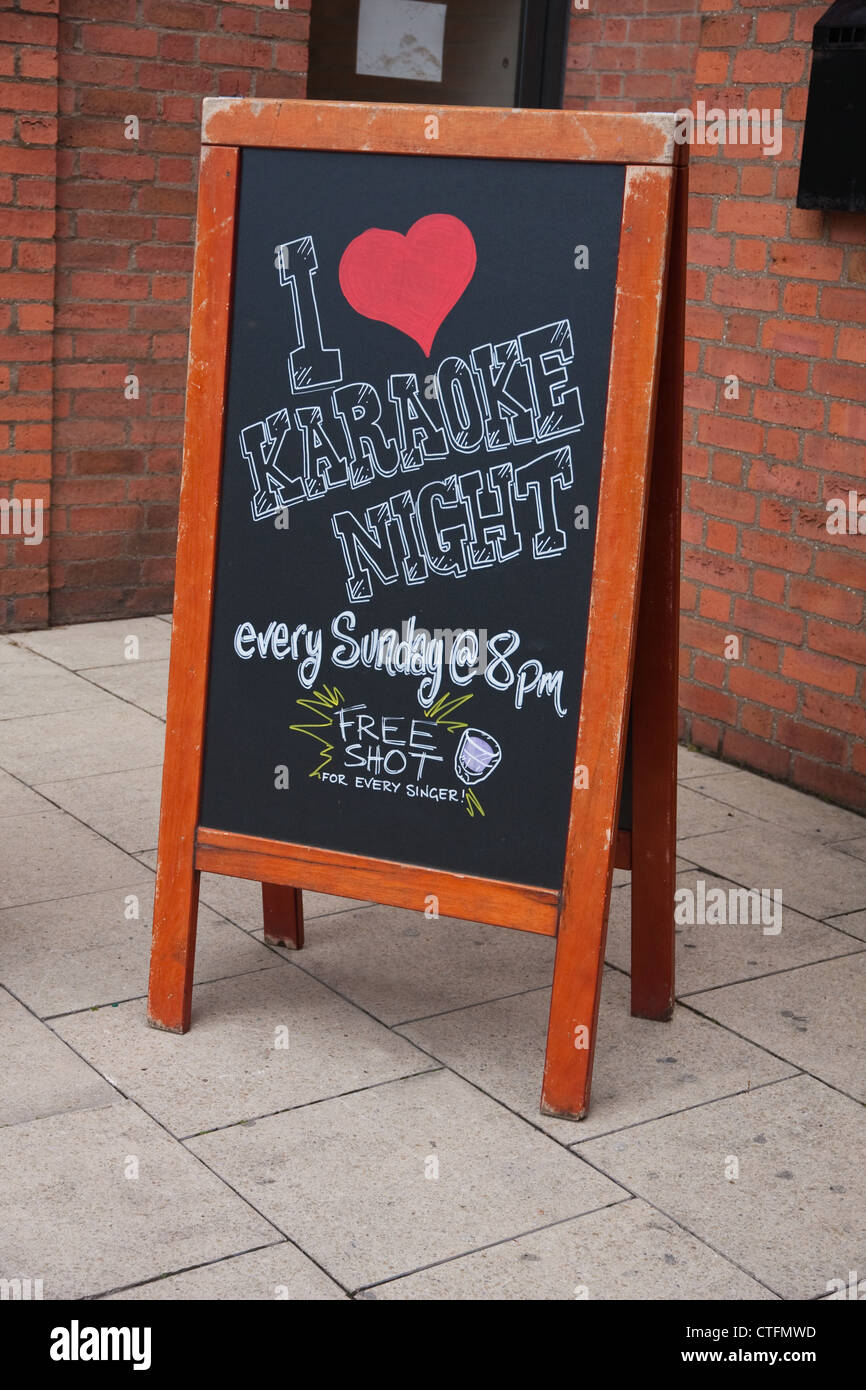 I ♥
KARAOKE
NIGHT
every Sunday @ 8pm
FREE
SHOT
FOR EVERY SINGER!
alamy
Image ID: CTFMWD
www.alamy.com